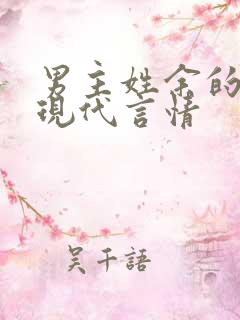 男主姓余的
現代言情
吴千語